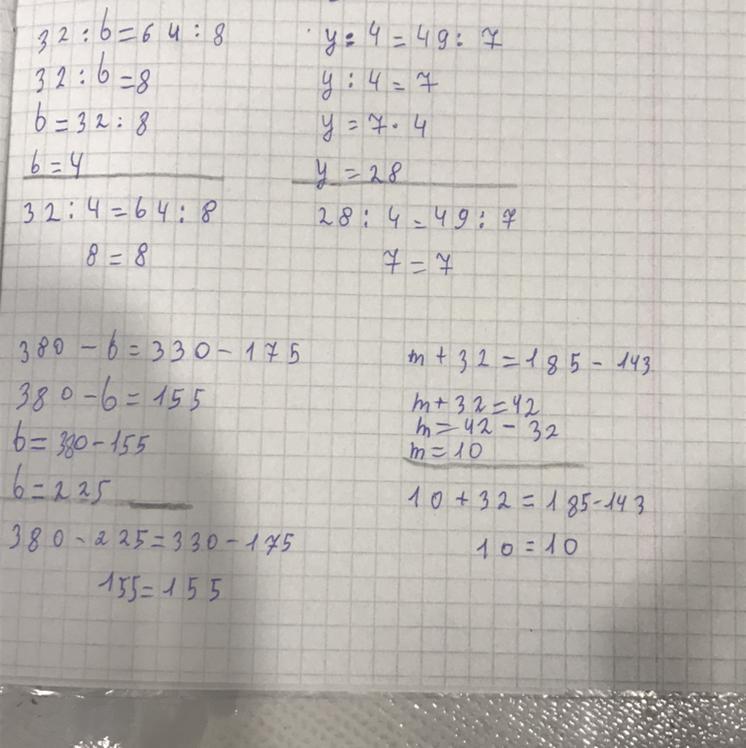 32 : b = 64 : 8
32 : b = 8
b = 32 : 8
b = 4
32 : 4 = 64 : 8
8 = 8
y : 4 = 49 : 7
y : 4 = 7
y = 7 · 4
y = 28
28 : 4 = 49 : 7
7 = 7
380 - b = 330 - 175
380 - b = 155
b = 380 - 155
b = 225
380 - 225 = 330 - 175
155 = 155
m + 32 = 185 - 143
m + 32 = 42
m = 42 - 32
m = 10
10 + 32 = 185 - 143
10 = 10